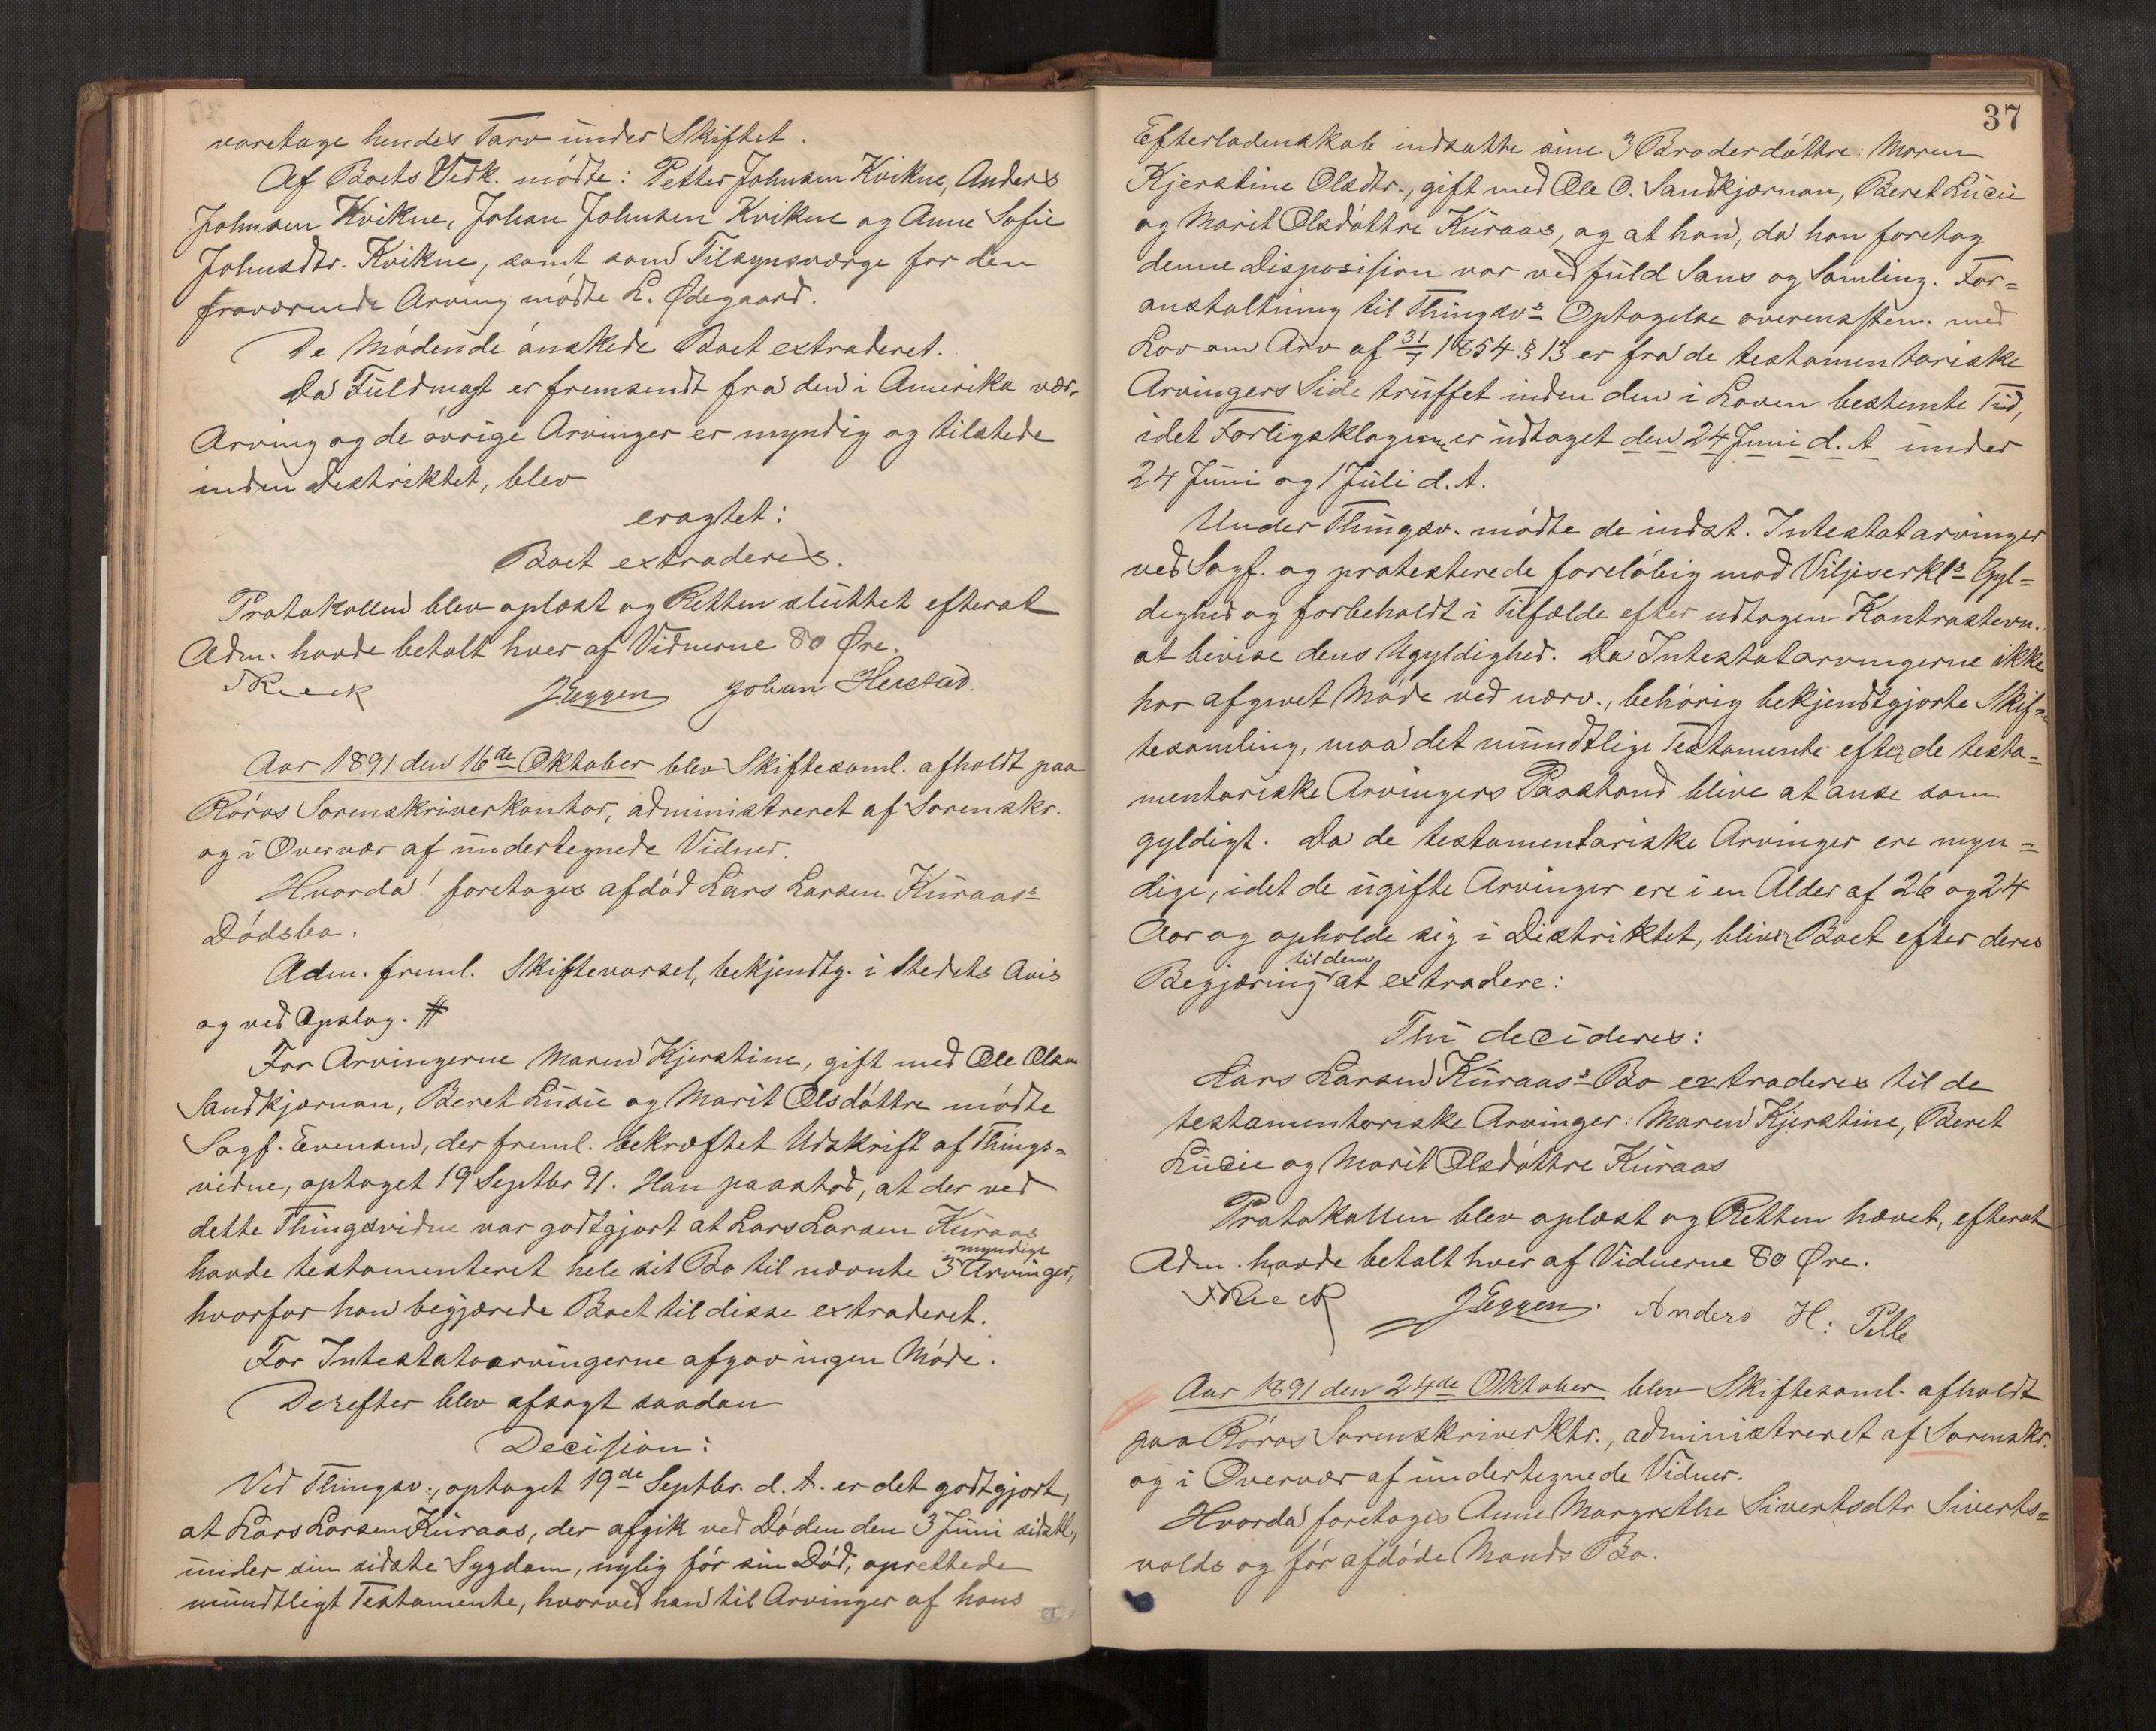 varetage hendes Tarv under Skiftet.
Af Boets Vedk. mødte: Petter Johnsen Kvikne, Anders
Johnsen Kvikne, Johan Johnsen Kvikne og Anne Sofie
Johnsdtr. Kvikne, samt som Tilsynsværge for den
fraværende Arving mødte L. Ødegaard.
De Mødende ønskede Boet extraderet.
Da Fuldmagt er fremsendt fra den i Amerika vær.
Arving og de øvrige Arvinger er myndig og tilstede
inden Destriktet, blev
eragtet:
Boet extraderes.
Protokollen blev oplæst og Retten sluttet efterat
Adm. havde betalt hver af Vidnerne 80 Øre.
JEggen Johan Herstad.
Aar 1891 den 16de Oktober blev Skiftesaml. afholdt paa
Røros Sorenskriverkontor, administreret af Sorenskr.
og i Overvær af undertegnede Vidner.
Hvorda! foretages afdød Lars Larsen Kuraas's
Dødsbo.
Adm. freml. Skiftevarsel, bekjendtg. i Stedets Avis
og ved Opslag. #
For Arvingerne Maren Kjerstine, gift med Ole Olsen
Sandkjærnan, Beret Lusie og Marit Olsdøttre mødte
Sagf. Evensen, der freml. bekræftet Udskrift af Things=
vidne, optaget 19 Septbr 91. Han paastod, at der ved
dette Thingsvidne var godtgjort at Lars Larsen Kuraas
myndige
havde testamenteret hele sit Bo til nævnte 3 Arvinger,
hvorfor han begjærede Boet til disse extraderet.
For Intestatarvingerne afgav ingen Møde.
Derefter blev afsagt saadan
Decision:
Ved Thingsv., optaget 19de Septbr. d. A. er det godtgjort,
at Lars Larsen Kuraas, der afgik ved Døden den 3 Juni sidstl.,
under sin sidste Sygdom, nylig før sin Død, oprettede
mundtligt Testamente, hvorved han til Arvinger af hans
37
Efterladenskab indsatte sine 3 Broderdøttre: Maren
Kjerstine Olsdtr., gift med Ole O. Sandkjærnan, Beret Lucie
og Marit Olsdøttre Kuraas, og at han, da han foretog
denne Disposision var ved fuld Sans og Samling. For=
anstaltning til Thingsv's Optagelse overensstem. med
Lov om Arv af 31/7 1854 § 13 er fra de testamentariske
Arvingers Side truffet inden den i Loven bestemte Tid,
idet Forligsklagen er udtaget den 24 Juni d. A under
24 Juni og 1 Juli d. A.
Under Thingsv. mødte de indst. Intestatarvinger
ved Sagf. og protesterede foreløbig mod Viljeserkl's Gyl=
dighed og forbeholdt i Tilfælde efter udtagen Kontrastevn.
at bevise dens Ugyldighed. Da Intestatarvingerne ikke
har afgivet Møde ved nærv., behørig bekjendtgjorte Skif=
tesamling, maa det mundtlige Testamente efter de testa=
mentariske Arvingers Paastand blive at anse som
gyldigt. Da de testamentariske Arvinger ere myn=
dige, idet de ugifte Arvinger ere i en Alder af 26 og 24
Aar og opholde sig i Distriktet, bliver Boet efter deres
til dem
Begjæring at extradere:
Thi decideres:
Lars Larsen Kuraas's Bo extraderes til de
testamentariske Arvinger: Maren Kjerstine, Beret
Lucie og Marit Olsdøttre Kuraas
Protokollen blev oplæst og Retten hævet, efterat
Adm. havde betalt hver af Vidnerne 80 Øre.
JEggen. Anders H: Pelle
Aar 1891 den 24de Oktober blev Skiftesaml. afholdt
paa Røros Sorenskriverktr., administreret af Sorenskr.
og i Overvær af undertegnede Vidner.
Hvorda foretages Anne Margrethe Sivertsdtr. Siverts=
volds og før afdøde Mands Bo.